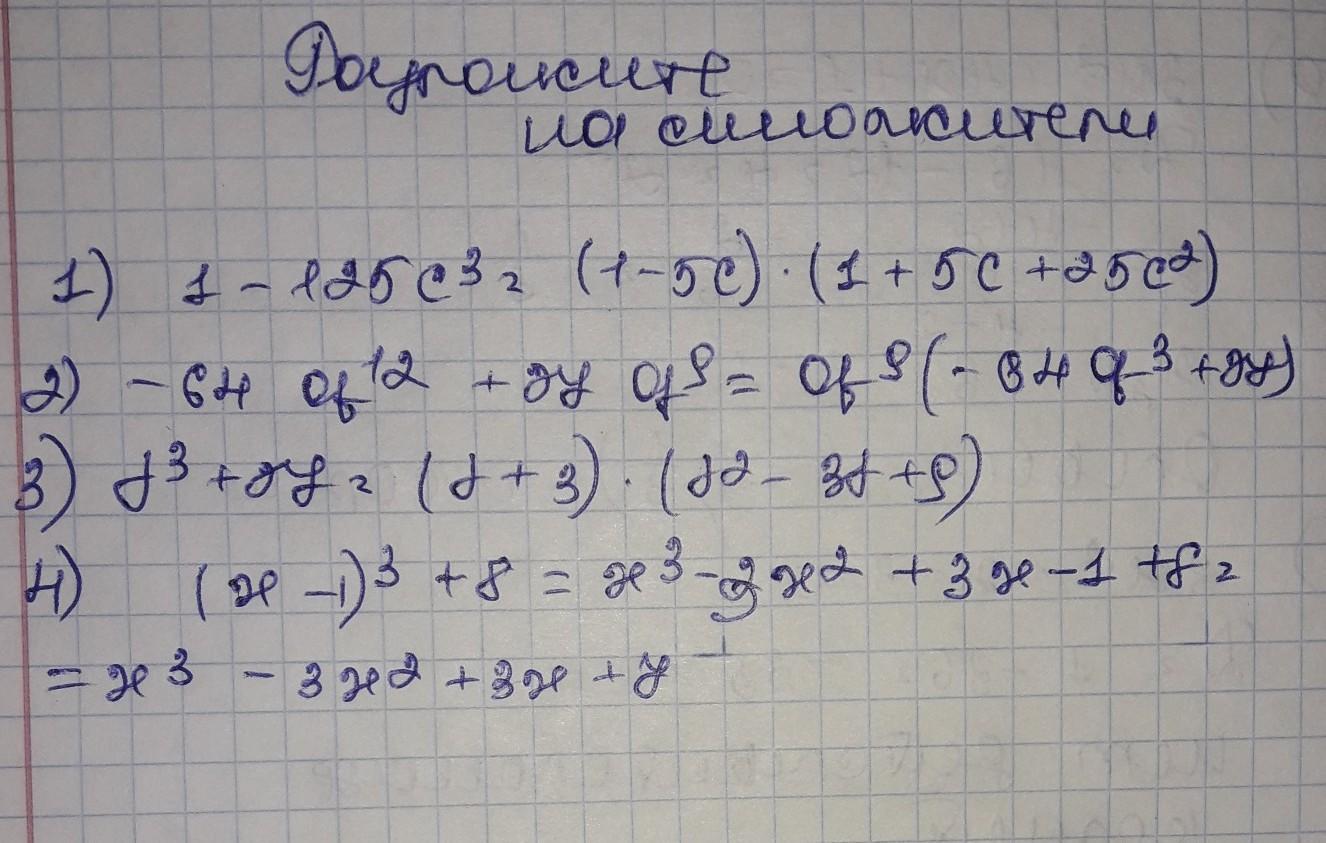 Разложите
на множители
1) 1 - 125c³ = (1-5c)·(1+5c+25c²)
2) -64 a¹² + 27 a⁹ = a⁹(-64a³+27)
3) y³+27 = (y+3)·(y²-3y+9)
4) (x-1)³ + 8 = x³ - 3x² + 3x - 1 + 8 =
= x³ - 3x² + 3x + 7